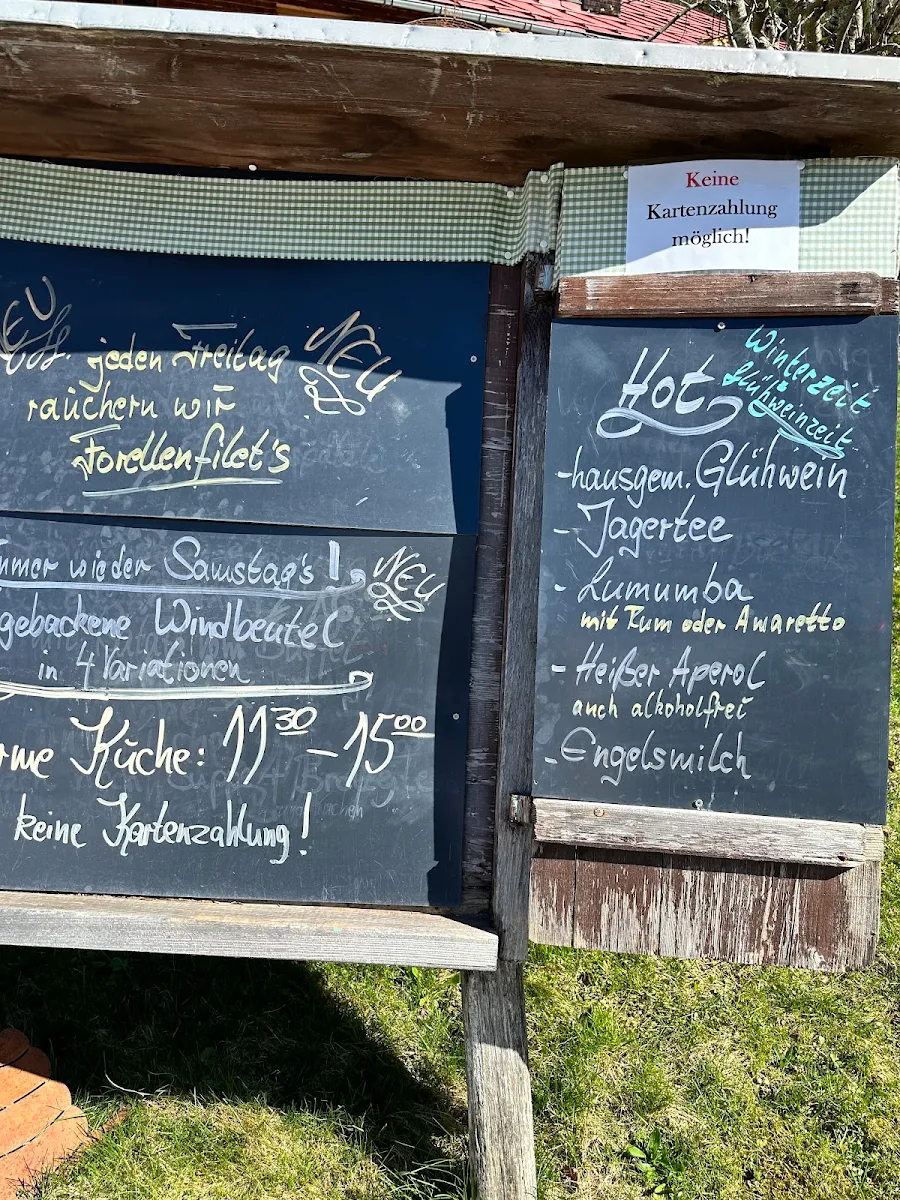 Keine
Kartenzahlung
möglich!
NEU
jeden Freitag
räuchern wir
Forellenfilet's
NEU
immer wieder Samstag's!
NEU
gebackene Windbeutel
in 4 Variationen
rme Küche: 11³⁰ – 15⁰⁰
keine Kartenzahlung!
Hot
Winterzeit
Glühweinzeit
- hausgem. Glühwein
- Jagertee
- Lumumba
mit Rum oder Amaretto
- Heißer Aperol
auch alkoholfrei
- Engelsmilch